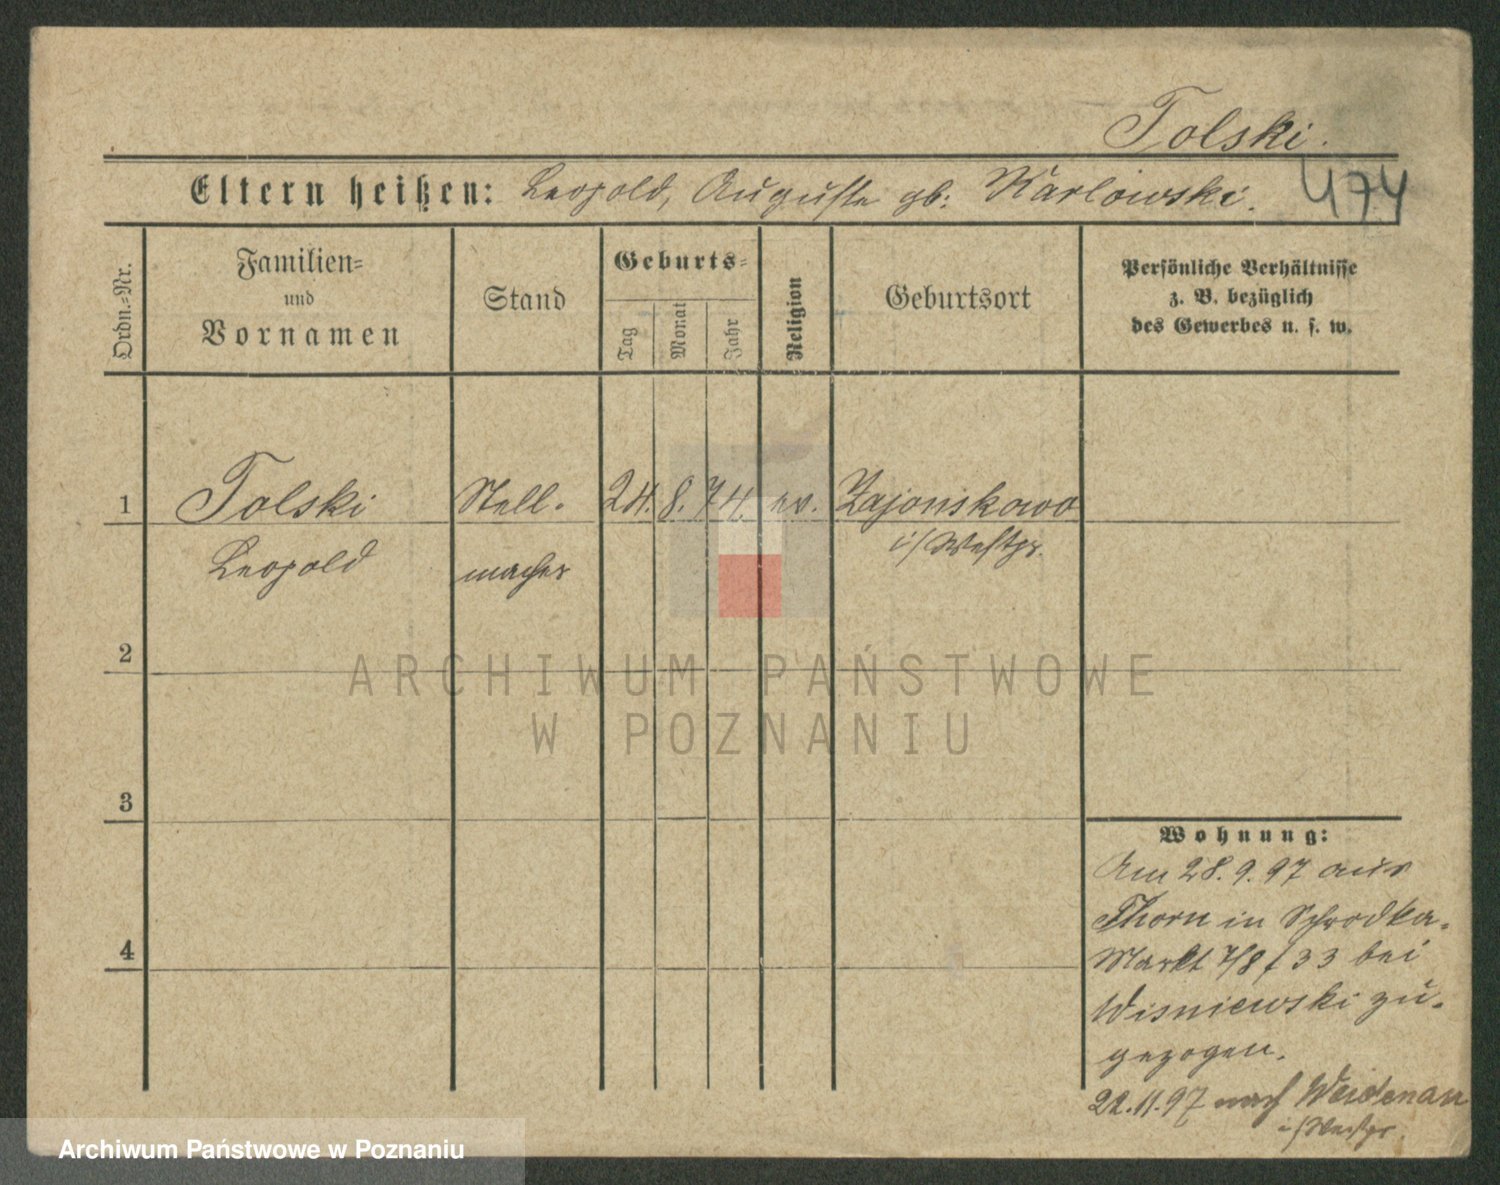 Tolski.
Eltern heißen: Leopold, Auguste gb: Karlowski.
474
Ordn.-Nr.
Familien-
und
Vornamen
Stand
Geburts-
Tag
Monat
Jahr
Religion
Geburtsort
Persönliche Verhältnisse
z. B. bezüglich
des Gewerbes u. s. w.
1 Tolski Stell- 24. 8. 74. ev. Zajonskowo
Leopold macher i/Westpr.
2
ARCHIWUM PAŃSTWOWE
W POZNANIU
3
Wohnung:
Am 28.9.97 aus
Thorn in Schrodka-
4
Markt 7/8 / 33 bei
Wisniewski zu-
gezogen.
22.11.97 nach Weidenau
i/Westpr.
Archiwum Państwowe w Poznaniu